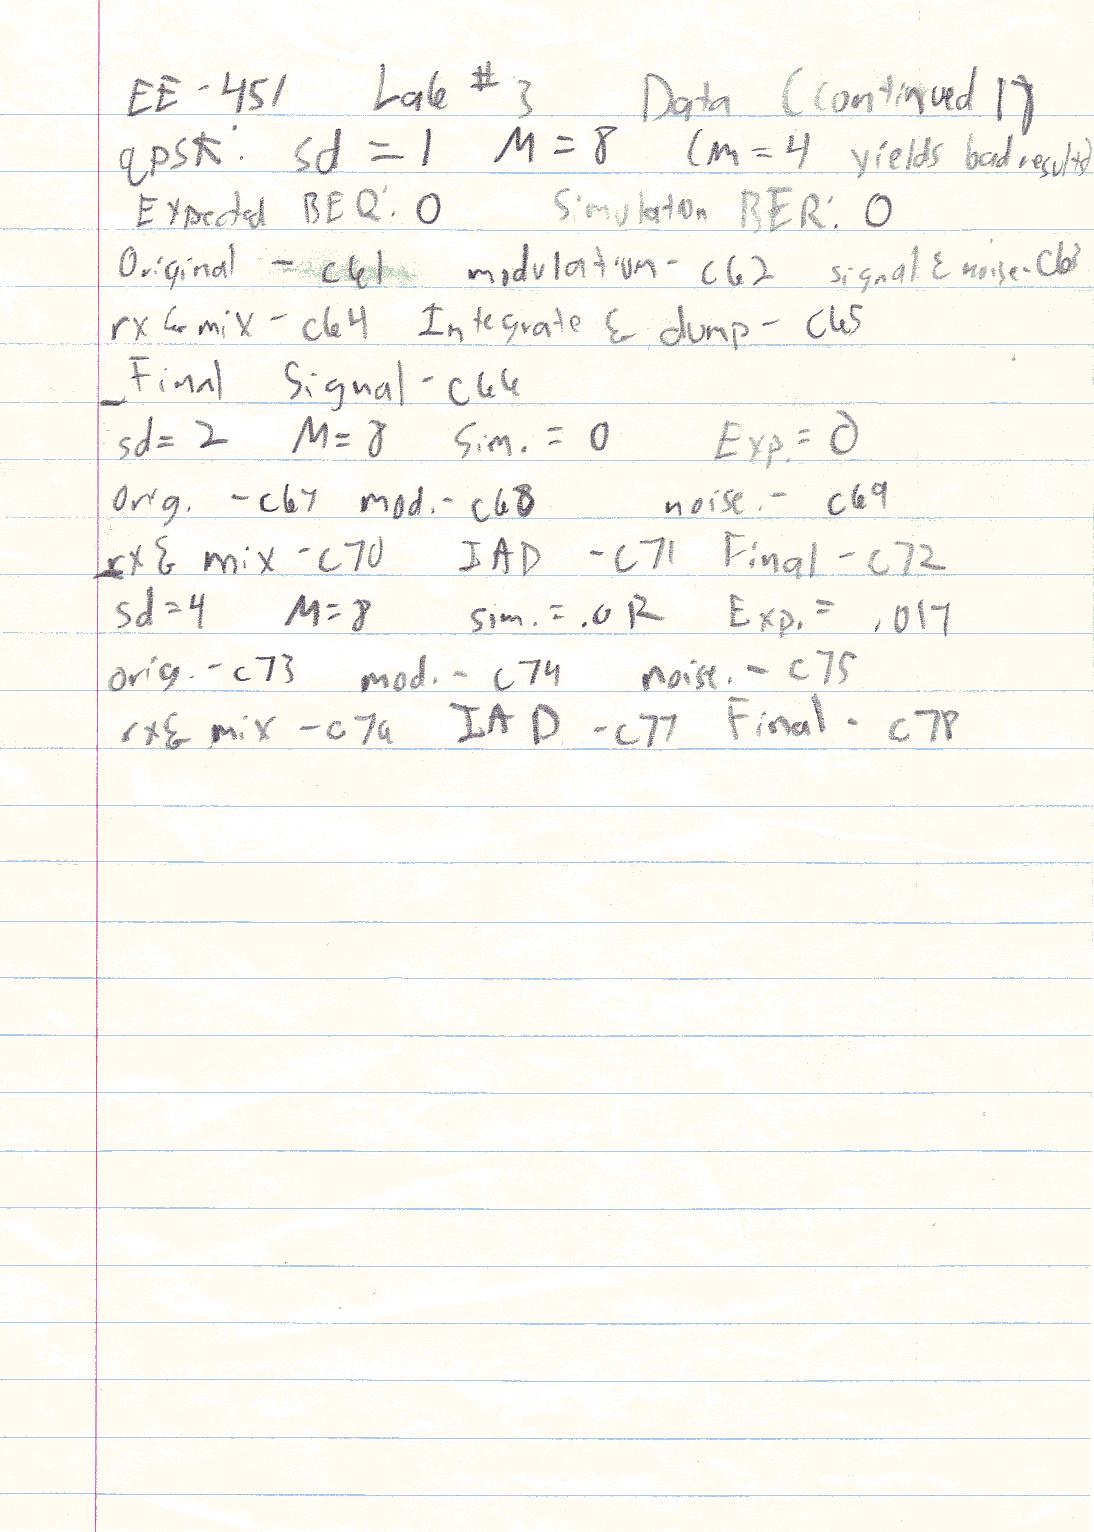 EE-451 Lab #3 Data (Continued 17)
qpsk: sd = 1 M = 8 (m = 4 yields bad results)
Expected BER: 0 Simulation BER: 0
Original - c61 modulation - c62 signal & noise - c63
rx & mix - c64 Integrate & dump - c65
Final Signal - c66
sd = 2 M = 8 Sim. = 0 Exp. = 0
Orig. - c67 mod. - c68 noise. - c69
rx & mix - c70 IAD - c71 Final - c72
sd = 4 M = 8 sim. = Exp. = .017
orig. - c73 mod. - c74 noise. - c75
rx & mix - c76 IAD - c77 Final - c78